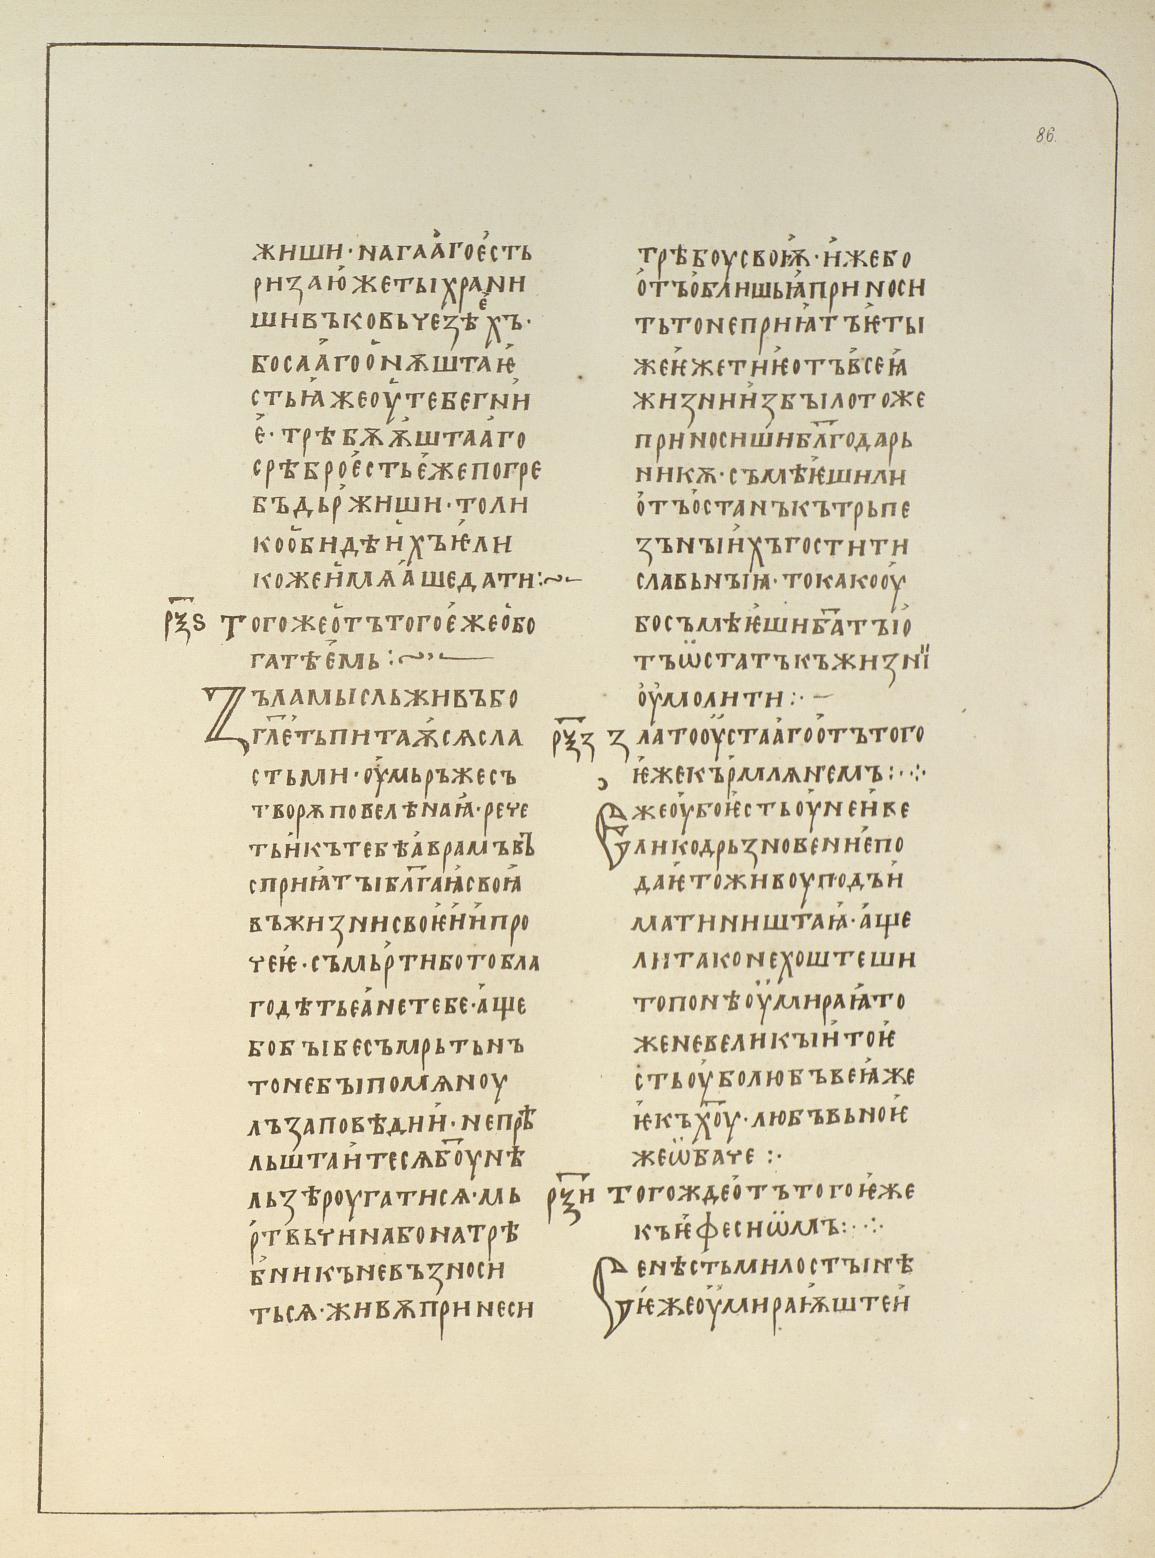 86.
жиши·нагаа́гое́сть
ризаю́жетꙑхрани
шивъковьчезѣе́хъ·
босаа́гоо҅нѫштаѥ́
стьꙗ́жеоу҅тебегни́
е́·трѣбѫѫ́штаа́го
срѣброе́стье́жепогре
бъдьр́жиши·толи
коо҅бидѣи҅хъѥ́ли
кожеи҅мѧа́шедати:~
р҃ѯѕ Тогожео҅тътогое́жео҅бо
гатѣе́мь:~
Ꙁъламꙑсльживъбо
гл҃е́тьпитаѫ́сѧсла
стьми·оу҅мьръжесъ
творѧповелѣнаꙗ́·рече
тьи҅кътебѣа́врамъвъ
сприꙗ́тꙑбл҃гаꙗ́своꙗ́
въжизнисвоѥ́и҅и҅про
чеѥ́·съмьр́тиботобла
годѣтьеа́нетебе·а́ще
бобꙑбесъмрьтьнъ
тонебꙑпомѧноу
лъзаповѣдии҅·непрѣ
льштаи҅тесѧбо҃унѣ
льзѣроугатисѧ·мь
р́твьчинабонатрѣ
б́никъневъзноси
тьсѧ·живѫпринеси
трѣбоусвоѭ́·и҅жебо
о҅тъо҅блишьꙗ́приноси
тьтонеприꙗ́тъѥ́тꙑ
жеѥ́жетиѥ́отъв́сеꙗ́
жизнии҅збꙑлотоже
приносишибл҃годарь
никѫ·съмѣѥ́шили
о҅тъо҅станъкътрьпе
зънꙑи҅хъгостити
славьнꙑꙗ·токакооу҅
босъмѣѥ́шиба҃тꙑо҅
тъѡ҅статъкъжизнї
оу҅молити:·–
р҃ѯз Златооу҅стаа́гоо҅тътого
ѥ́жекър́млѧн҄емъ:··:·
Ѥжеоу҅боѥ́стьоу҅неи҅ве
ликодрьзновение́по
даѥ́тоживоуподъи҅
матиништаꙗ́·а́ще
литаконехоштеши
топонѣоу҅мираꙗ́то
женевеликꙑи҅тоѥ́
стьоу҅болюбъвеꙗ́же
ѥ́къхо҃у·любъвьноѥ́
жеѡ҅баче:·
р҃ѯи Тогождео҅тътогоѥ́же
къѥ́фесиѡ҅мъ:··:·
Сенѣстьмилостꙑн҄ѣ
ѥ́жеоу҅мираѭ́штеи҅